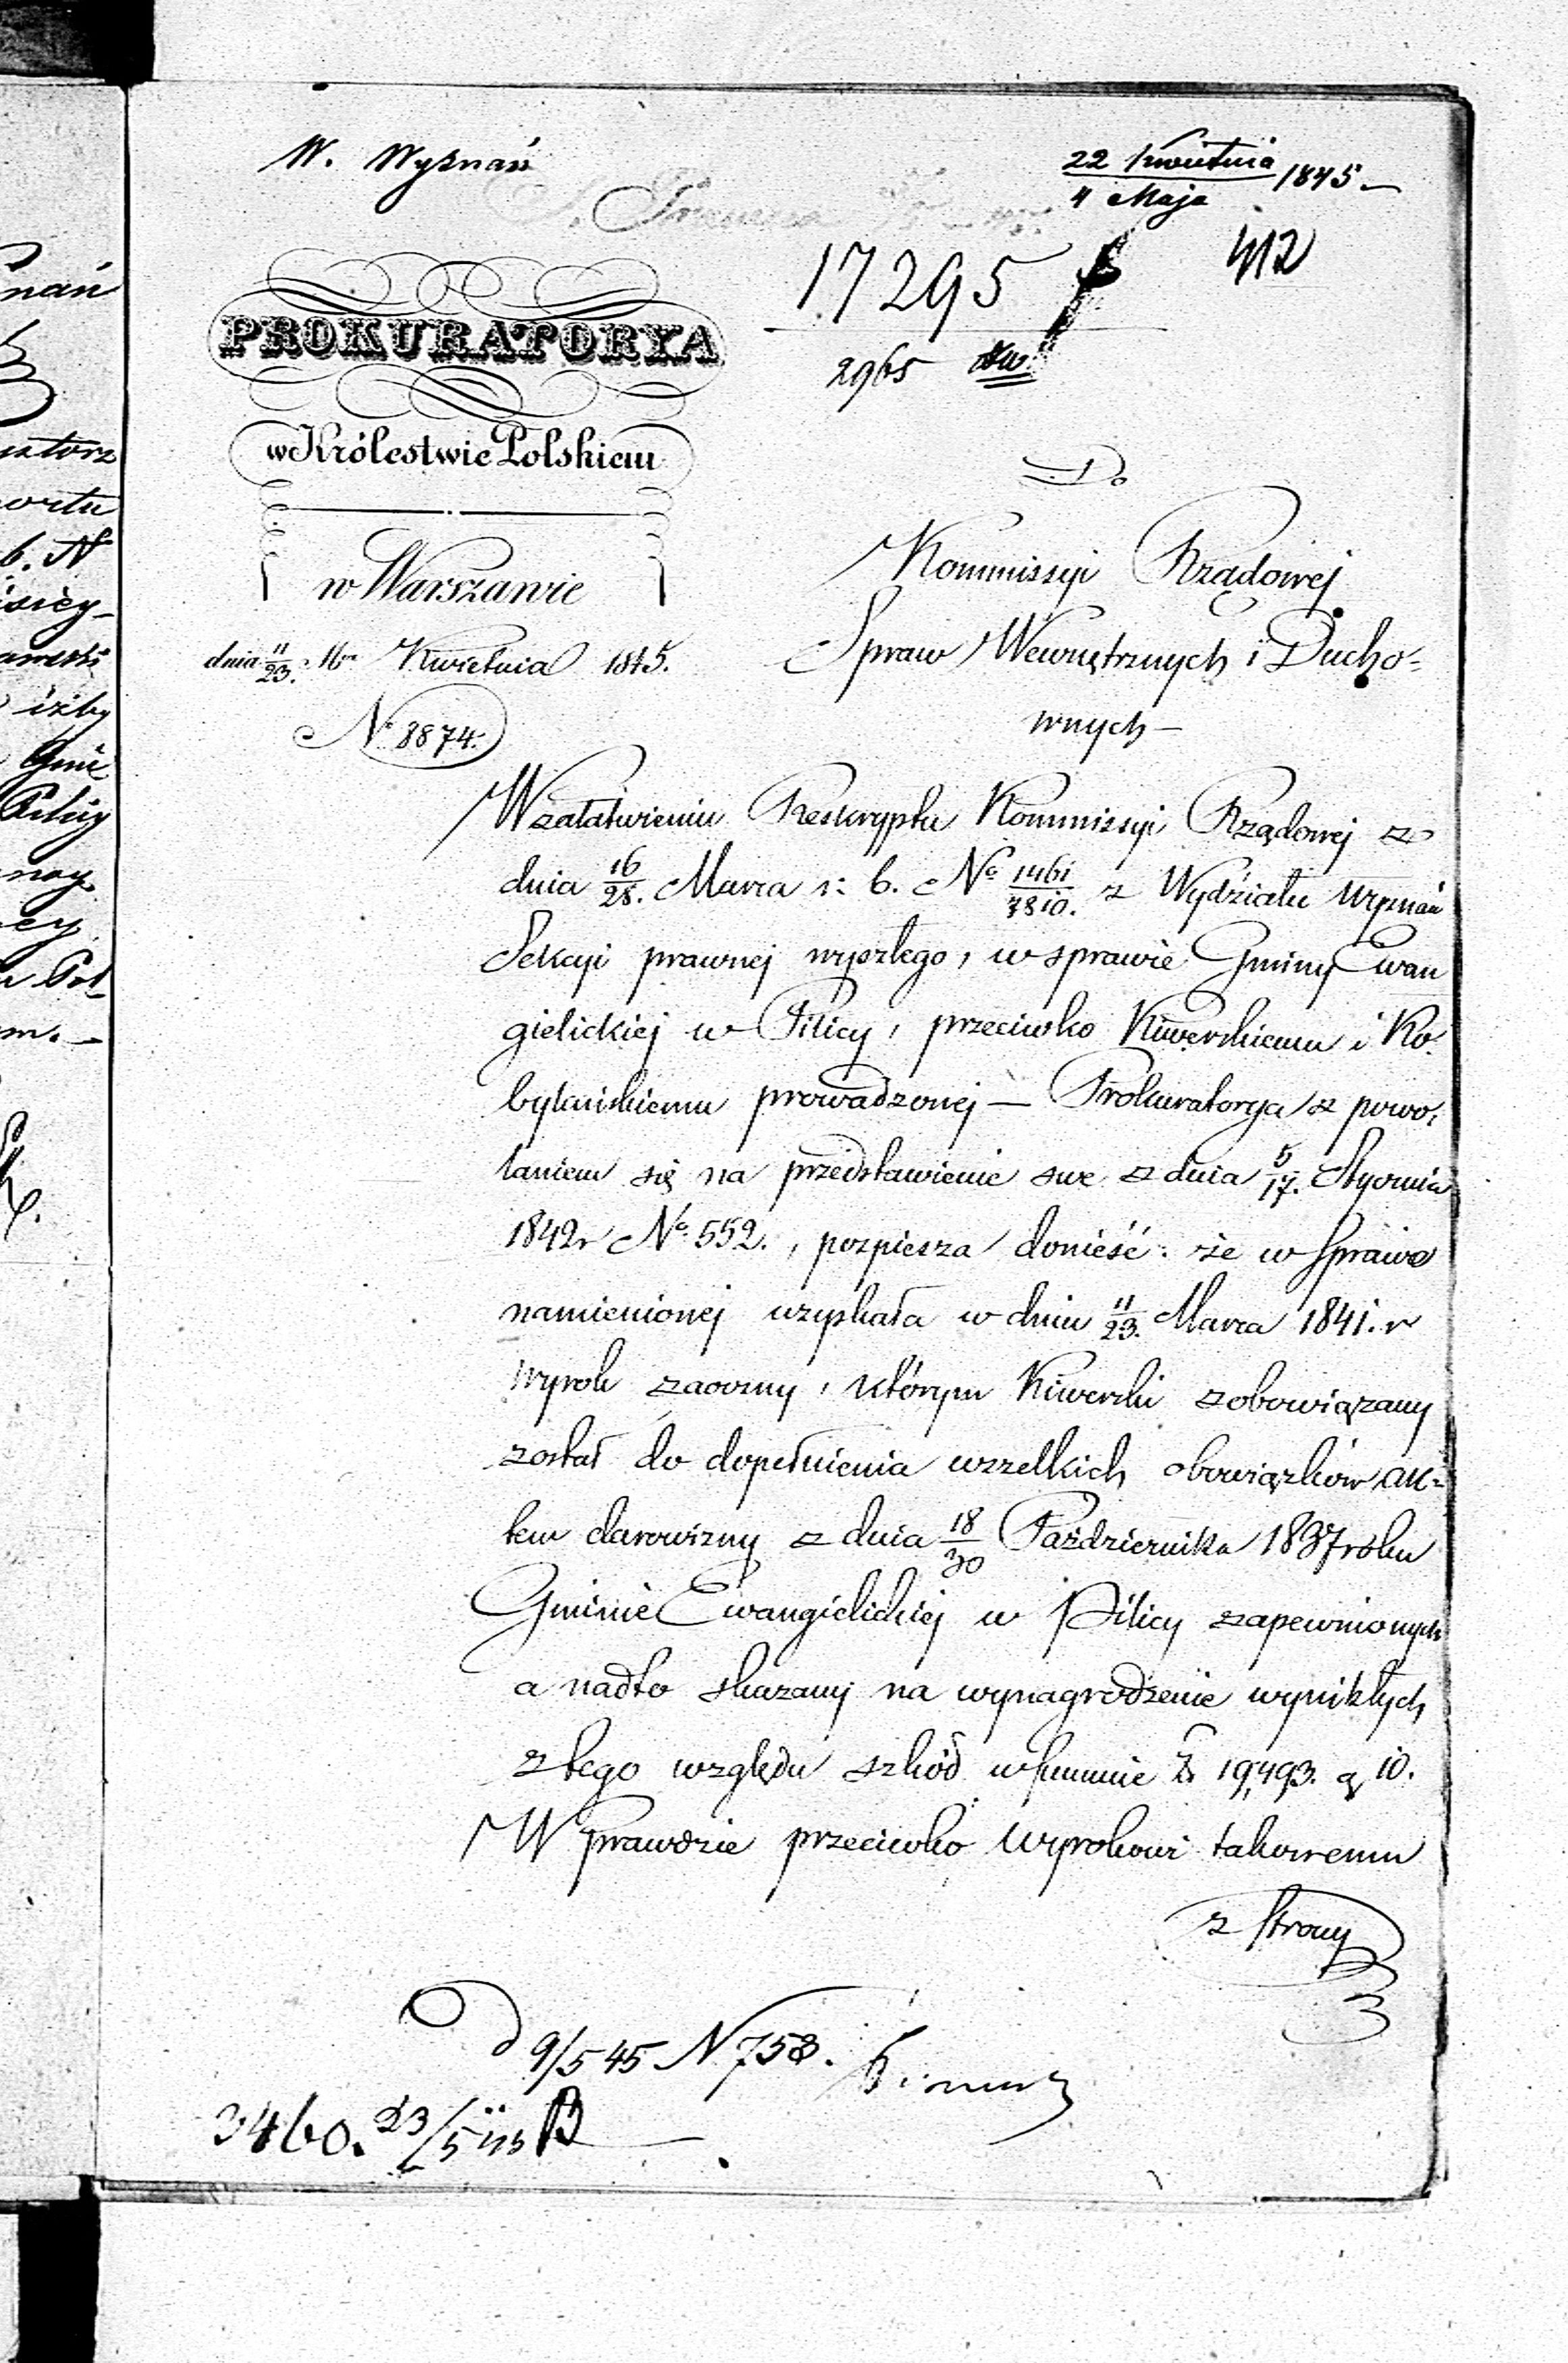 W. Wyznań
22 Kwietnia
4 Maja 1845
412
17295
2965
PROKURATORYA
w Królestwie Polskiem
w Warszawie
dnia 11/23 Kwietnia 1845.
No 8874.
Do
Kommissyi Rządowej
Spraw Wewnętrznych i Ducho-
wnych —
W załatwieniu Reskryptu Kommissyi Rządowej z
dnia 16/28. Marca r: b. No 1461/7810. z Wydziału Wyznań
Sekcyi prawnej wyszłego, w sprawie Gminy Ewan
gielickiej w Pilicy, przeciwko Kiwerskiemu i Ko-
bylańskiemu prowadzonej — Prokuratorya z powo-
łaniem się na przedstawienie swe z dnia 5/17. Stycznia
1842r No 552., pospiesza donieść: że w sprawie
namienionej uzyskała w dniu 11/23. Marca 1841. r
wyrok zaoczny, którym Kiwerski zobowiązany
został do dopełnienia wszelkich obowiązków ak-
tem darowizny z dnia 18/30 Października 1837 roku
Gminie Ewangielickiej w Pilicy zapewnionych
a nadto skazany na wynagrodzenie wynikłych
z tego względu szkód w summie Zł. 19,493. g 10.
W prawdzie przeciwko wyrokowi takowemu
z strony
9/5 45 N 758.
3460. 23/5
nań
wortu
b. N
iżby
Gmi
ney
cy
m. —